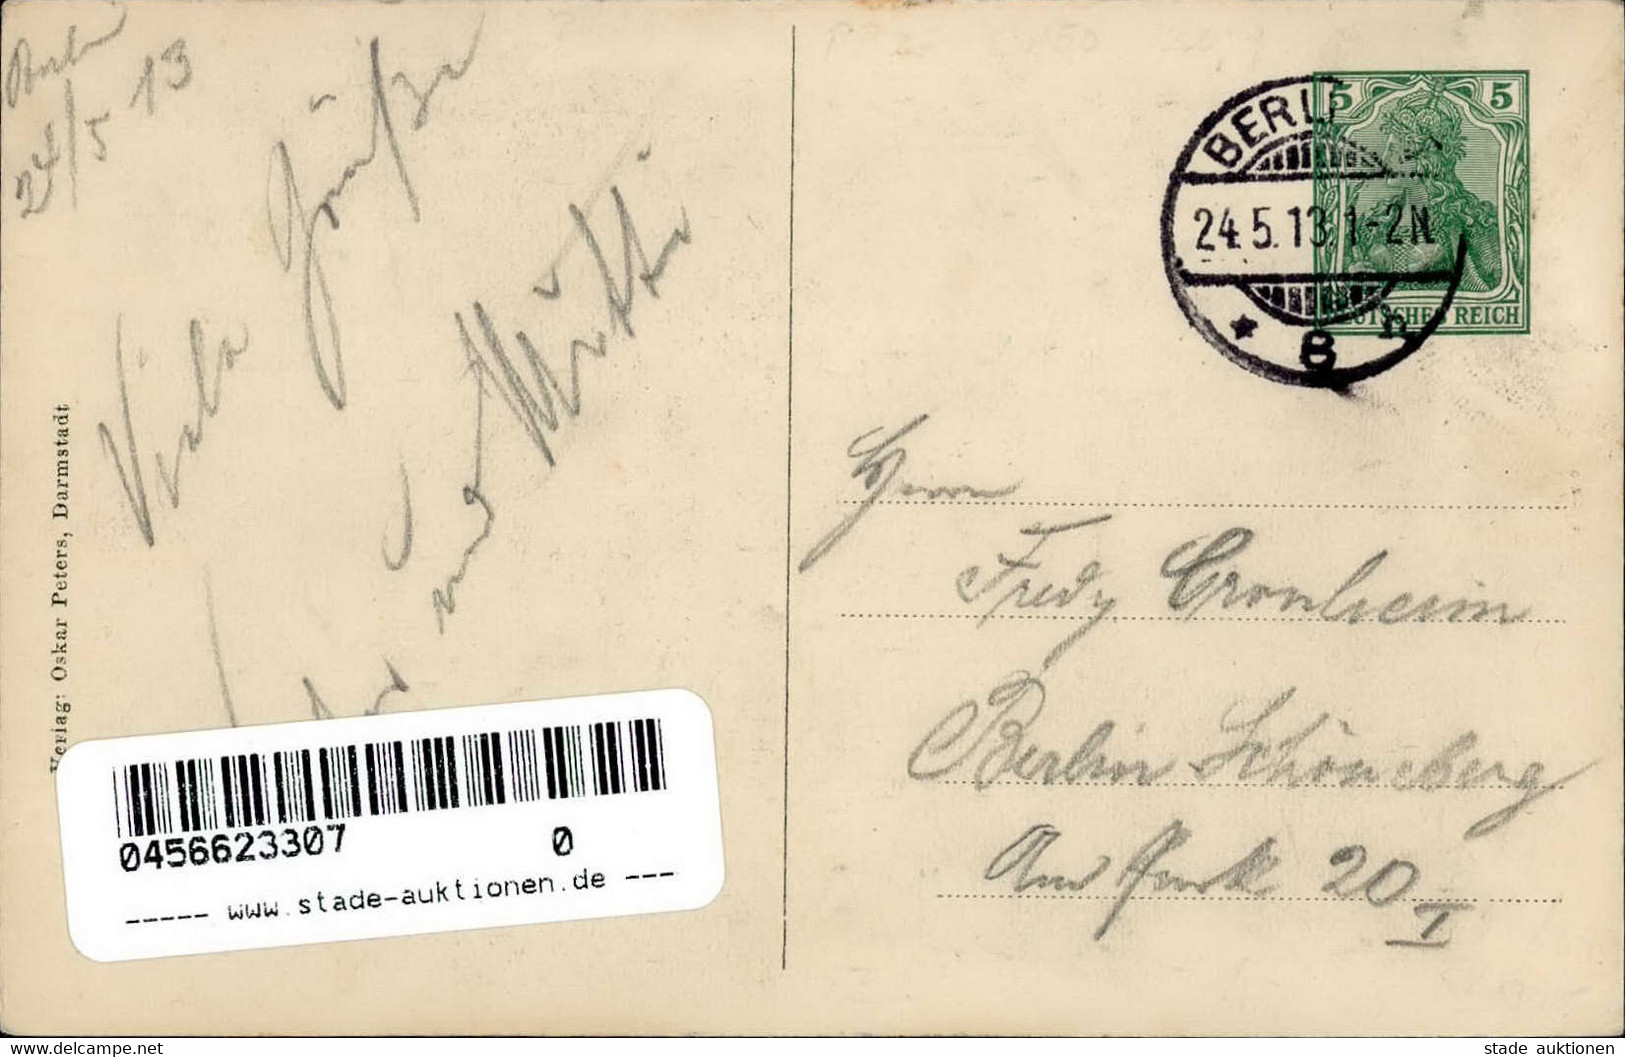 Berlin
24/5 13
Viele Grüße
und Mutti
Verlag: Oskar Peters, Darmstadt
5 5
DEUTSCHES REICH
BERLIN
24.5.13.1-2N
* 8 n
Herrn
Fredy Cronheim
Berlin Schöneberg
Am Park 20 I
0456623307 0
----- www.stade-auktionen.de ---
delcampe.net Website
stade auktionen